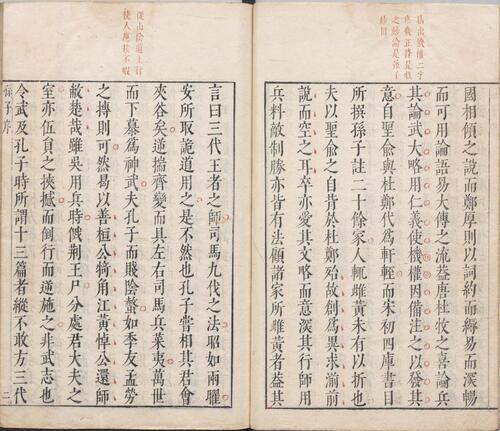 拈出機權二字
之妙論是孫子
國相傾之說而鄭厚則以詞約而縟易而深暢
而可用論語易大傳之流葢唐杜牧之喜論兵
其論武大略用仁義使機權因備注之以發其
意自聖俞與杜鄭代為軒輊而宋初四庫書目
所撰孫子註二十餘家人輒雌黃未有以折也
夫以聖俞之自肯於杜鄭殆故創為異求湔前
說而空之耳卒亦愛其文略而意深其行師用
兵料敵制勝亦皆有法顧諸家所雌黃者葢其
從山陰道上行
使人應接不暇
言曰三代王者之師司馬九伐之法昭如兩曜
安所取詭道用之是不然也孔子嘗相其君會
夾谷矣逆揣齊變而具左右司馬兵萊夷萬世
而下慕為神武夫孔子而賤陰螫如季友孟勞
之摶則可然曷以善桓公犄角江黃悼公還師
敝楚哉雖吳用兵時俄荆王尸分處君大夫之
室亦伍員之狹憾而倒行而逆施之非武志也
令武及孔子時所謂十三篇者縱不敢方三代
孫子序 二